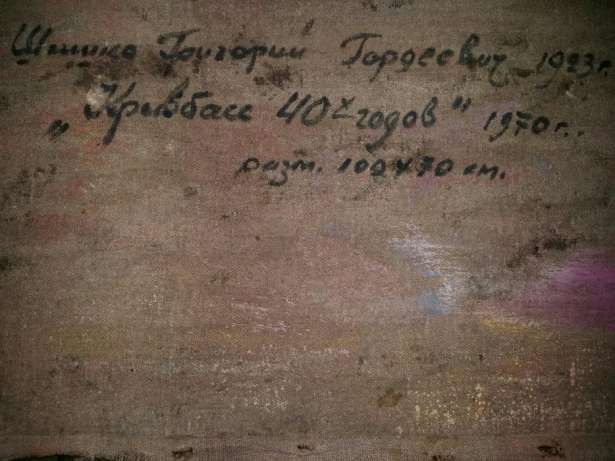 Шишко Григорий Гордеевич 1923г.
„Кривбасс 40х годов" 1970г.
разм. 100х70 см.